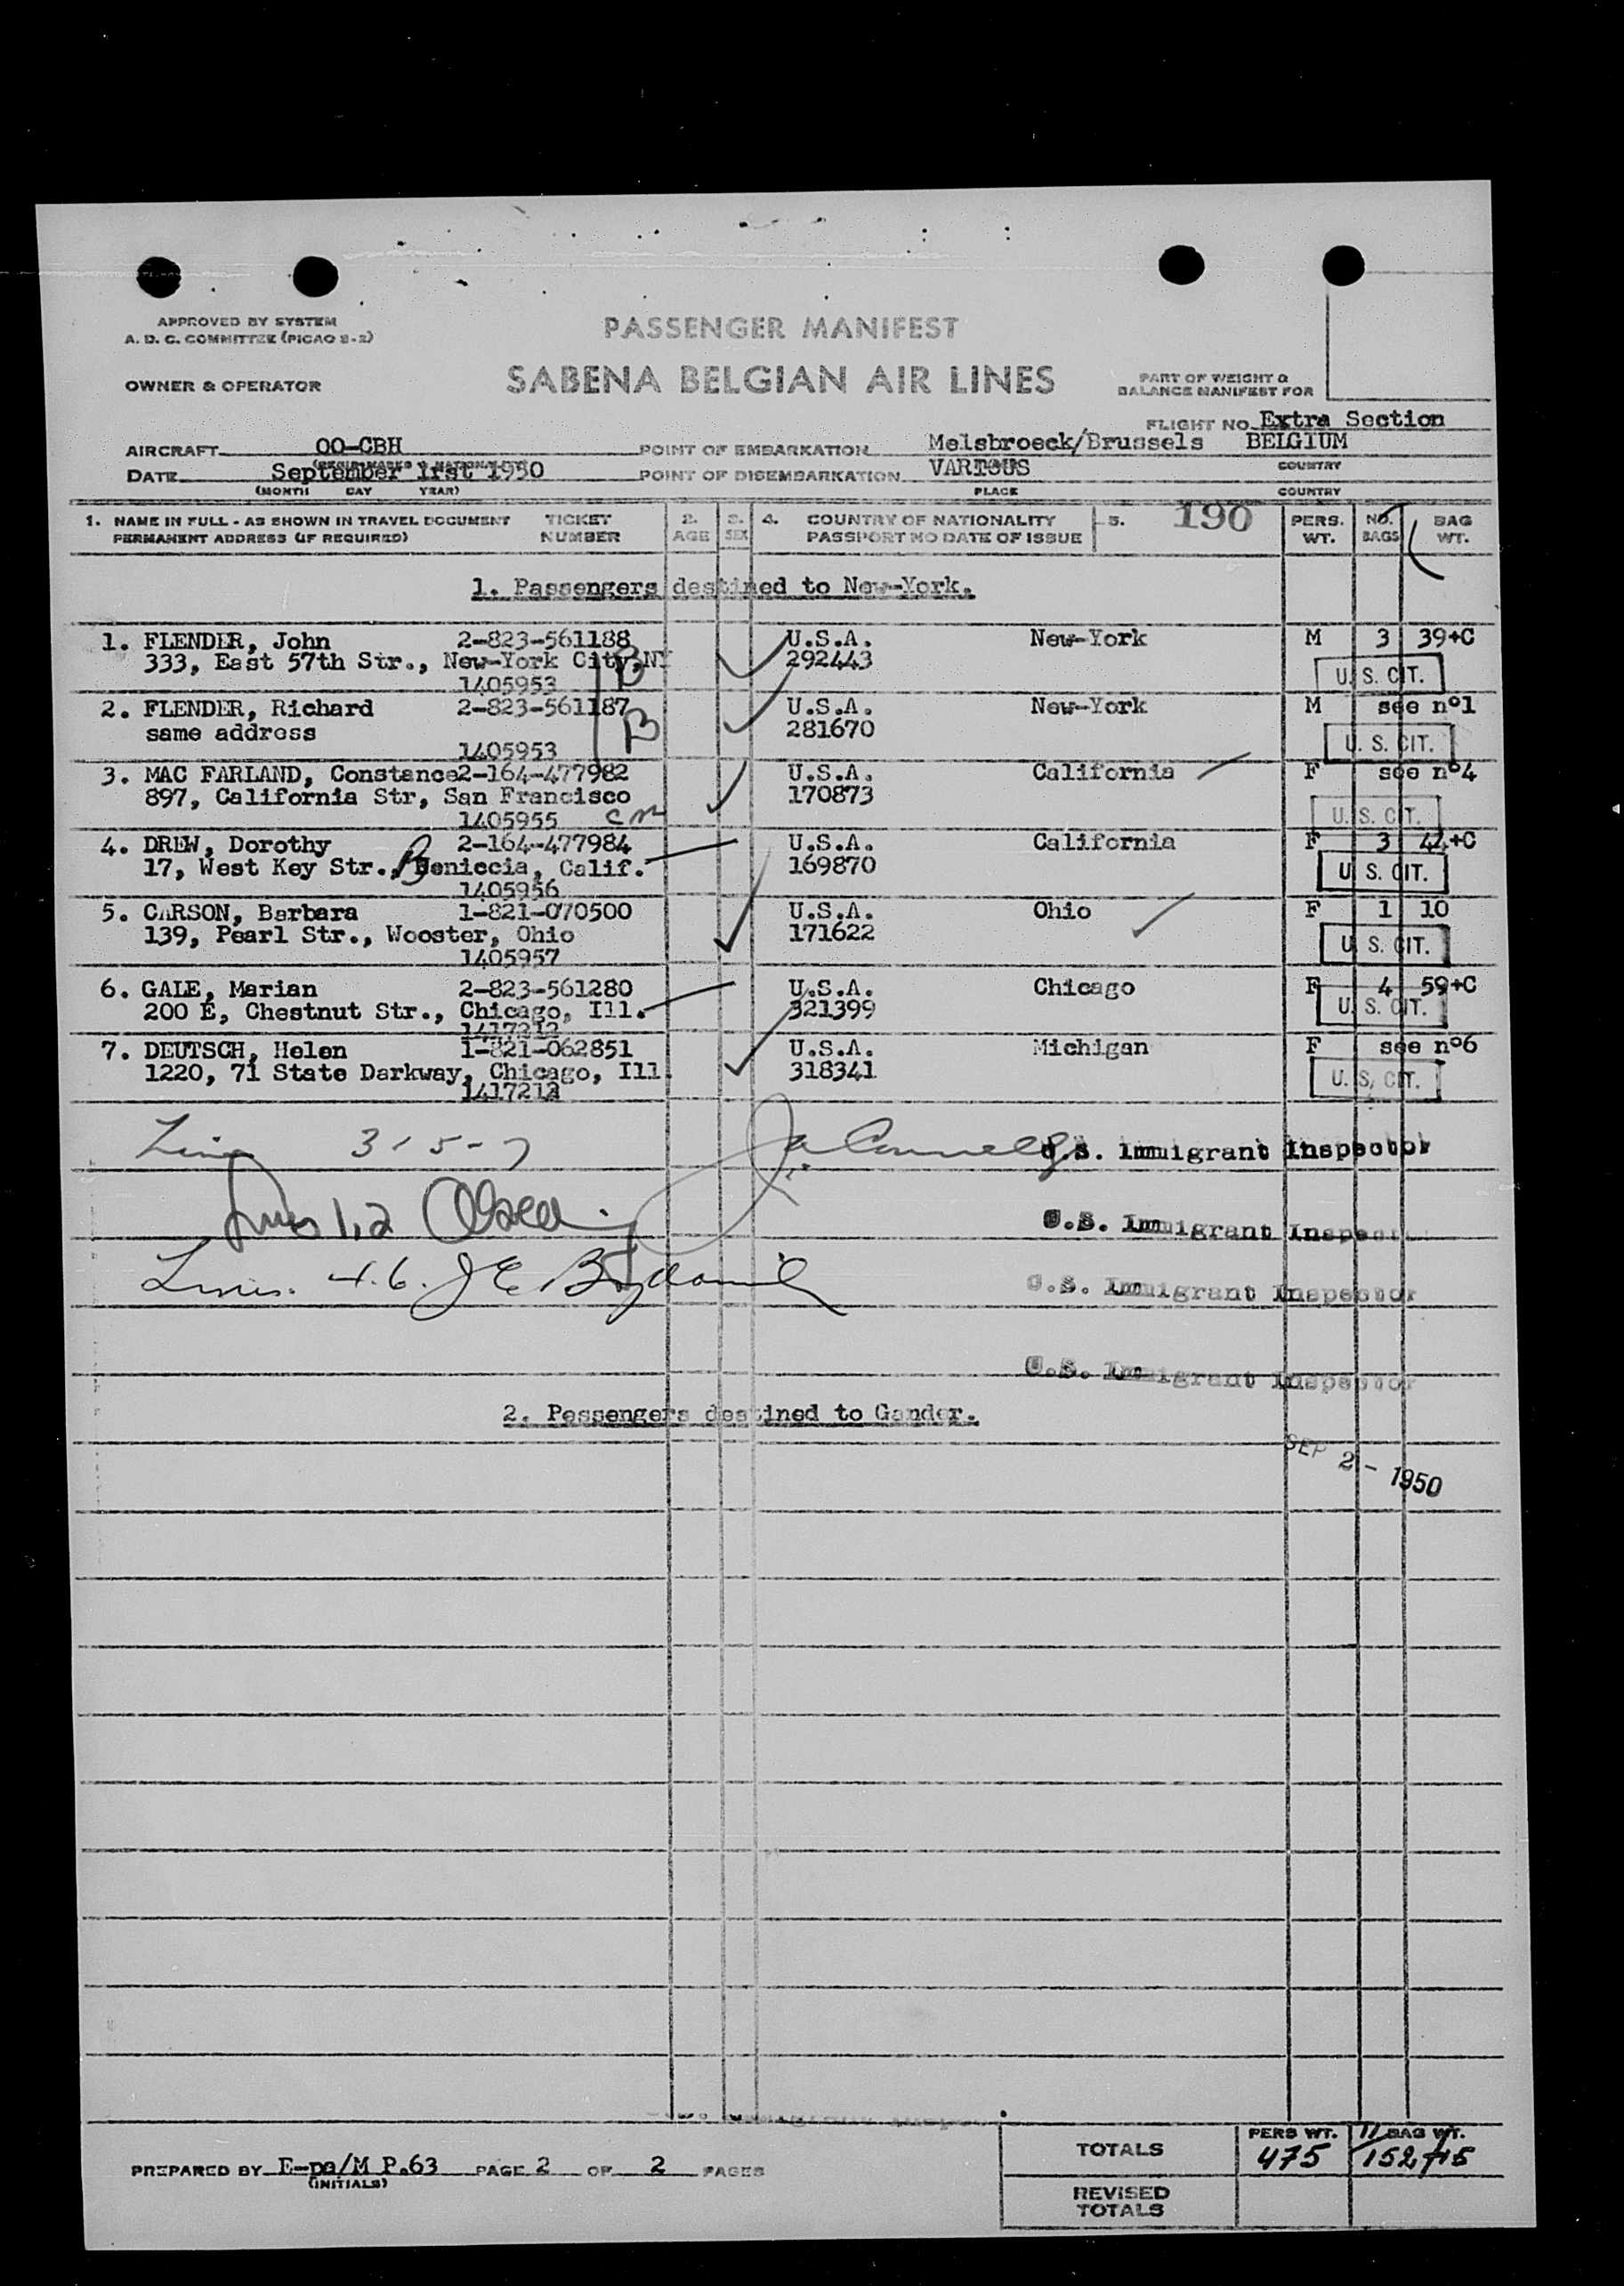 APPROVED BY SYSTEM
A. D. C. COMMITTEE (PICAO S-2)
PASSENGER MANIFEST
OWNER & OPERATOR
SABENA BELGIAN AIR LINES
PART OF WEIGHT &
BALANCE MANIFEST FOR
FLIGHT NO Extra Section
AIRCRAFT OO-CBH POINT OF EMBARKATION Melsbroeck/Brussels BELGIUM
DATE September 1rst 1950 POINT OF DISEMBARKATION VARIOUS COUNTRY
(MONTH DAY YEAR) PLACE COUNTRY
1. NAME IN FULL - AS SHOWN IN TRAVEL DOCUMENT TICKET 2. 3. 4. COUNTRY OF NATIONALITY 5. 190 PERS. NO. BAG
PERMANENT ADDRESS (IF REQUIRED) NUMBER AGE SEX PASSPORT NO DATE OF ISSUE WT. BAGS WT.
1. Passengers destined to New-York.
1. FLENDER, John 2-823-561188 U.S.A. New-York M 3 39+C
333, East 57th Str., New-York City, NY B 292443 U. S. CIT.
1405953
2. FLENDER, Richard 2-823-561187 U.S.A. New-York M see nº1
same address B 281670 U. S. CIT.
1405953
3. MAC FARLAND, Constance 2-164-477982 U.S.A. California F see nº4
897, California Str, San Francisco 170873 U. S. CIT.
1405955
4. DREW, Dorothy 2-164-477984 U.S.A. California F 3 44+C
17, West Key Str., Beniccia, Calif. 169870 U. S. CIT.
1405956
5. CARSON, Barbara 1-821-070500 U.S.A. Ohio F 1 10
139, Pearl Str., Wooster, Ohio 171622 U. S. CIT.
1405957
6. GALE, Marian 2-823-561280 U.S.A. Chicago F 4 59+C
200 E, Chestnut Str., Chicago, Ill. 321399 U. S. CIT.
1417212
7. DEUTSCH, Helen 1-821-062851 U.S.A. Michigan F see nº6
1220, 71 State Darkway, Chicago, Ill. 318341 U. S. CIT.
1417212
3-5-7 U.S. Immigrant Inspector
1,2 Olsen U.S. Immigrant Inspect
Lines. 4.6. J E U.S. Immigrant Inspector
U.S. Immigrant Inspector
2. Passengers destined to Gander.
SEP 2 - 1950
PERS WT. BAG WT.
TOTALS 475
PREPARED BY E-pa/M P.63 PAGE 2 OF 2 PAGES
(INITIALS)
REVISED
TOTALS